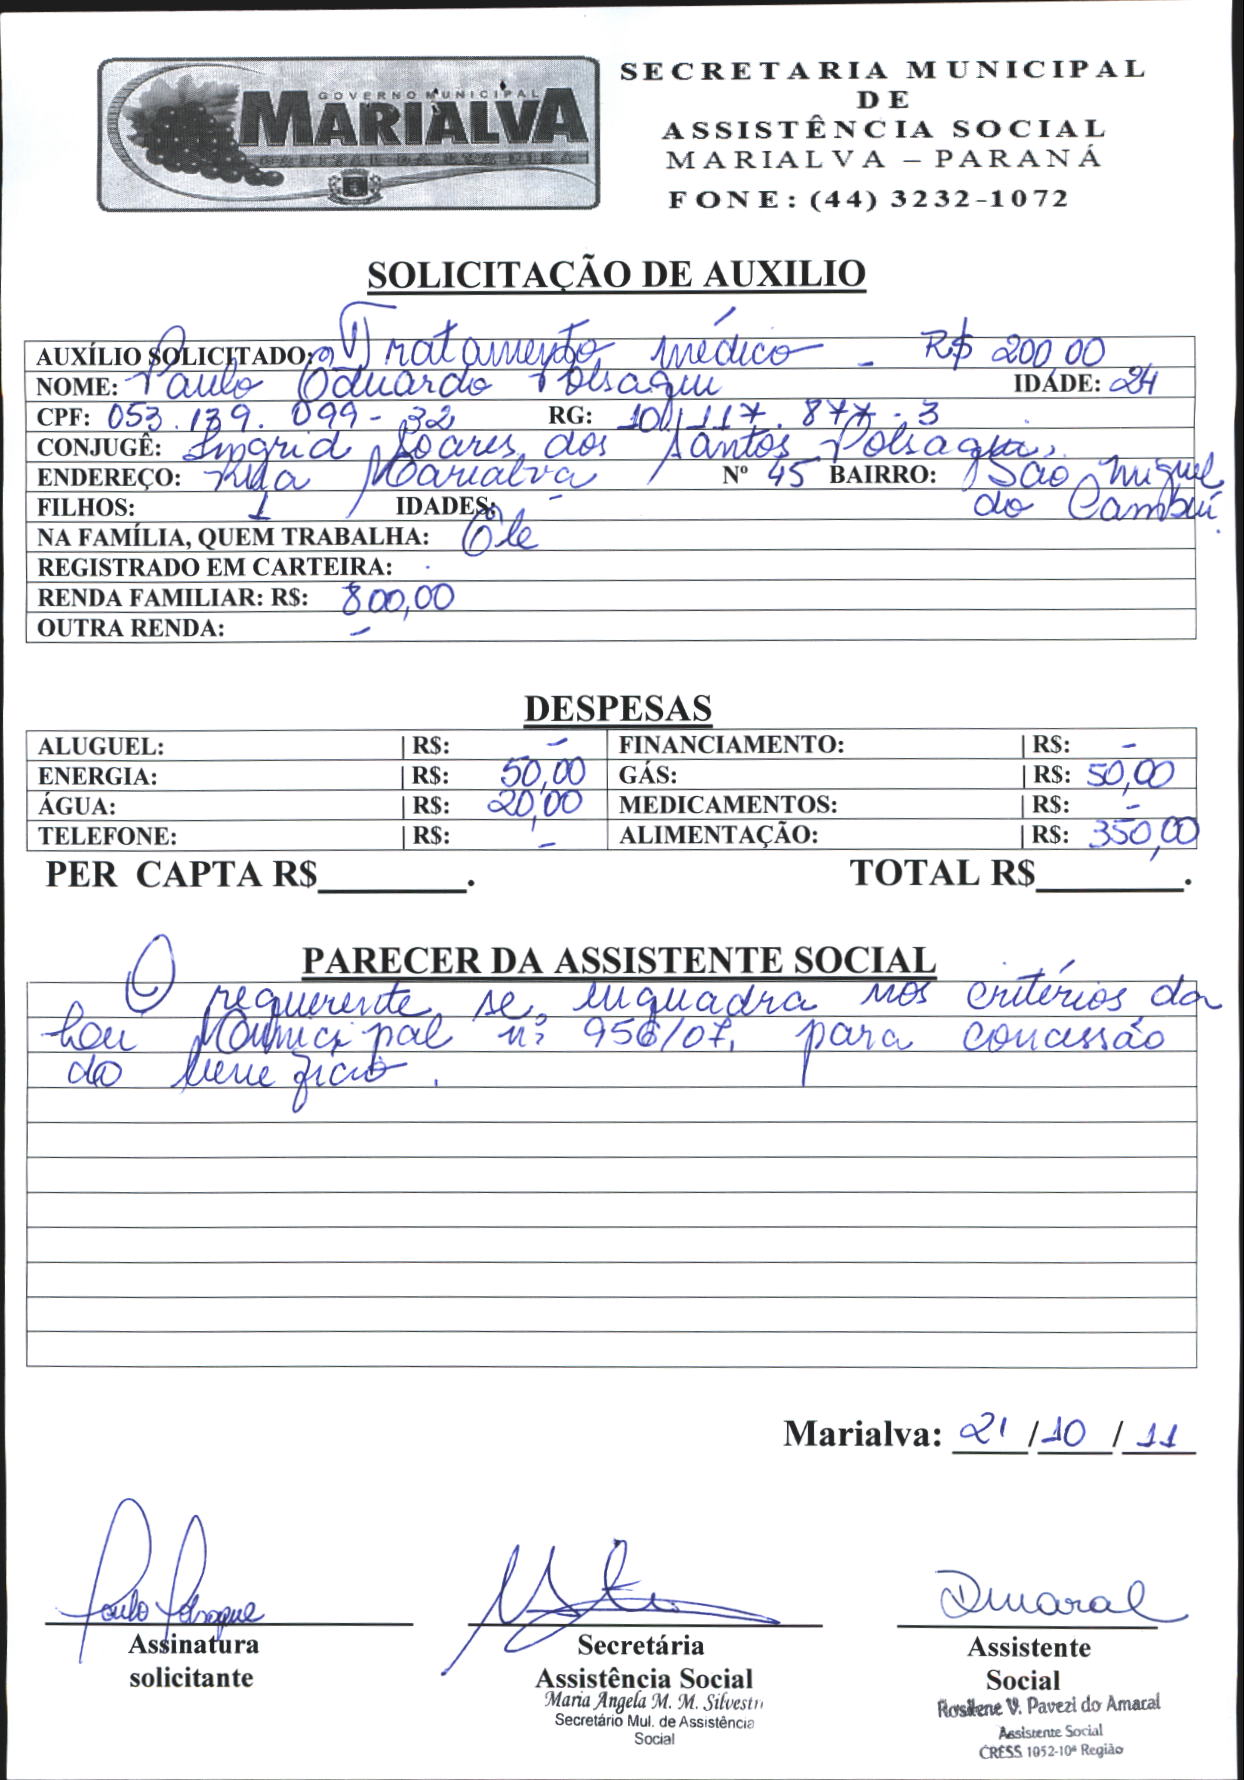 GOVERNO MUNICIPAL
MARIALVA
CAPITAL DA UVA FINA
SECRETARIA MUNICIPAL
DE
ASSISTÊNCIA SOCIAL
MARIALVA – PARANÁ
FONE: (44) 3232-1072
SOLICITAÇÃO DE AUXILIO
AUXÍLIO SOLICITADO: Tratamento médico - R$ 200 00
NOME: Paulo Eduardo Polsaqui IDADE: 24
CPF: 053.139.099-32 RG: 10.117.877-3
CONJUGÊ: Ingrid Soares dos Santos Polsaqui.
ENDEREÇO: Rua Marialva Nº 45 BAIRRO: São Miguel
do Cambuí.
FILHOS: 1 IDADES: -
NA FAMÍLIA, QUEM TRABALHA: Ele
REGISTRADO EM CARTEIRA: .
RENDA FAMILIAR: R$: 800,00
OUTRA RENDA: -
DESPESAS
ALUGUEL: | R$: - FINANCIAMENTO: | R$: -
ENERGIA: | R$: 50,00 GÁS: | R$: 50,00
ÁGUA: | R$: 20,00 MEDICAMENTOS: | R$: -
TELEFONE: | R$: - ALIMENTAÇÃO: | R$: 350,00
PER CAPTA R$________. TOTAL R$________.
PARECER DA ASSISTENTE SOCIAL
O requerente se enquadra nos critérios da
Lei Municipal nº 956/07, para concessão
do benefício.
Marialva: 21 / 10 / 11
Paulo Polsaque
Amaral
Assinatura
solicitante
Secretária
Assistência Social
Maria Angela M. M. Silvestri
Secretário Mul. de Assistência
Social
Assistente
Social
Rosilene V. Pavezi do Amaral
Assistente Social
CRESS 1052-10ª Região